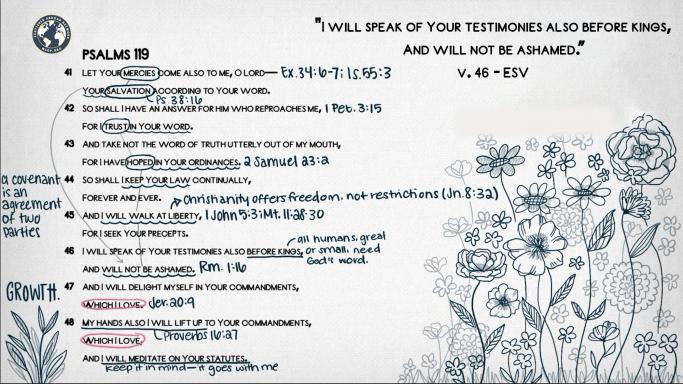 "I WILL SPEAK OF YOUR TESTIMONIES ALSO BEFORE KINGS,
AND WILL NOT BE ASHAMED."
V. 46 - ESV
PSALMS 119
41 LET YOUR MERCIES COME ALSO TO ME, O LORD— Ex. 34:6-7; Is. 55:3
YOUR SALVATION ACCORDING TO YOUR WORD.
Ps. 38:16
42 SO SHALL I HAVE AN ANSWER FOR HIM WHO REPROACHES ME, 1 Pet. 3:15
FOR I TRUST IN YOUR WORD.
43 AND TAKE NOT THE WORD OF TRUTH UTTERLY OUT OF MY MOUTH,
FOR I HAVE HOPED IN YOUR ORDINANCES. 2 Samuel 23:2
44 SO SHALL I KEEP YOUR LAW CONTINUALLY,
FOREVER AND EVER.
Christianity offers freedom, not restrictions (Jn. 8:32)
a covenant
is an
agreement
of two
parties
45 AND I WILL WALK AT LIBERTY, 1 John 5:3; Mt. 11:28-30
FOR I SEEK YOUR PRECEPTS.
46 I WILL SPEAK OF YOUR TESTIMONIES ALSO BEFORE KINGS,
all humans, great
or small, need
God's word.
AND WILL NOT BE ASHAMED. Rm. 1:16
GROWTH.
47 AND I WILL DELIGHT MYSELF IN YOUR COMMANDMENTS,
WHICH I LOVE. Jer. 20:9
48 MY HANDS ALSO I WILL LIFT UP TO YOUR COMMANDMENTS,
WHICH I LOVE, Proverbs 16:27
AND I WILL MEDITATE ON YOUR STATUTES.
keep it in mind— it goes with me